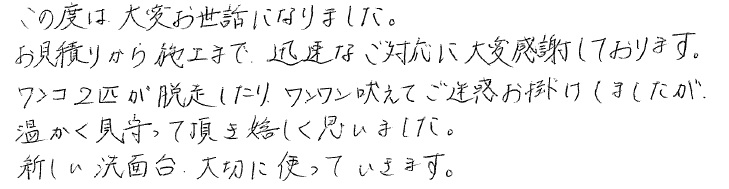 この度は大変お世話になりました。
お見積りから施工まで、迅速なご対応に大変感謝しております。
ワンコ2匹が脱走したり、ワンワン吠えてご迷惑お掛けしましたが、
温かく見守って頂き嬉しく思いました。
新しい洗面台、大切に使っていきます。